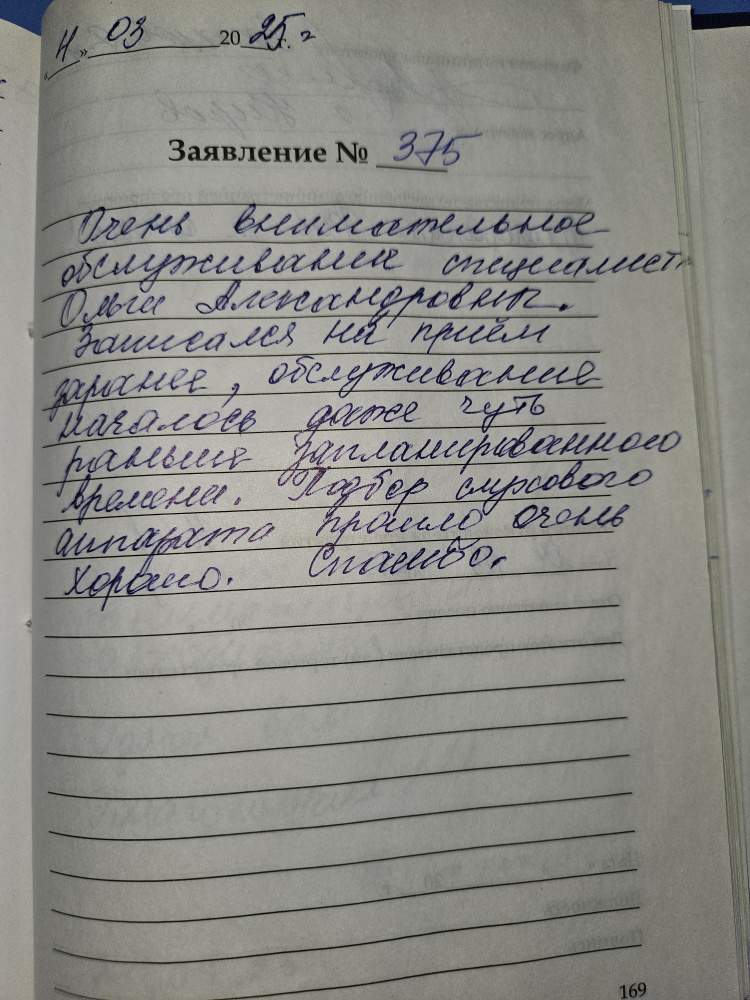 «11» 03 2025 г. г
Заявление № 375
Очень внимательное
обслуживание специалист
Ольги Александровны.
Записался на приём
заранее, обслуживание
началось даже чуть
раньше запланированного
времени. Подбор слухового
аппарата прошло очень
хорошо. Спасибо.
169